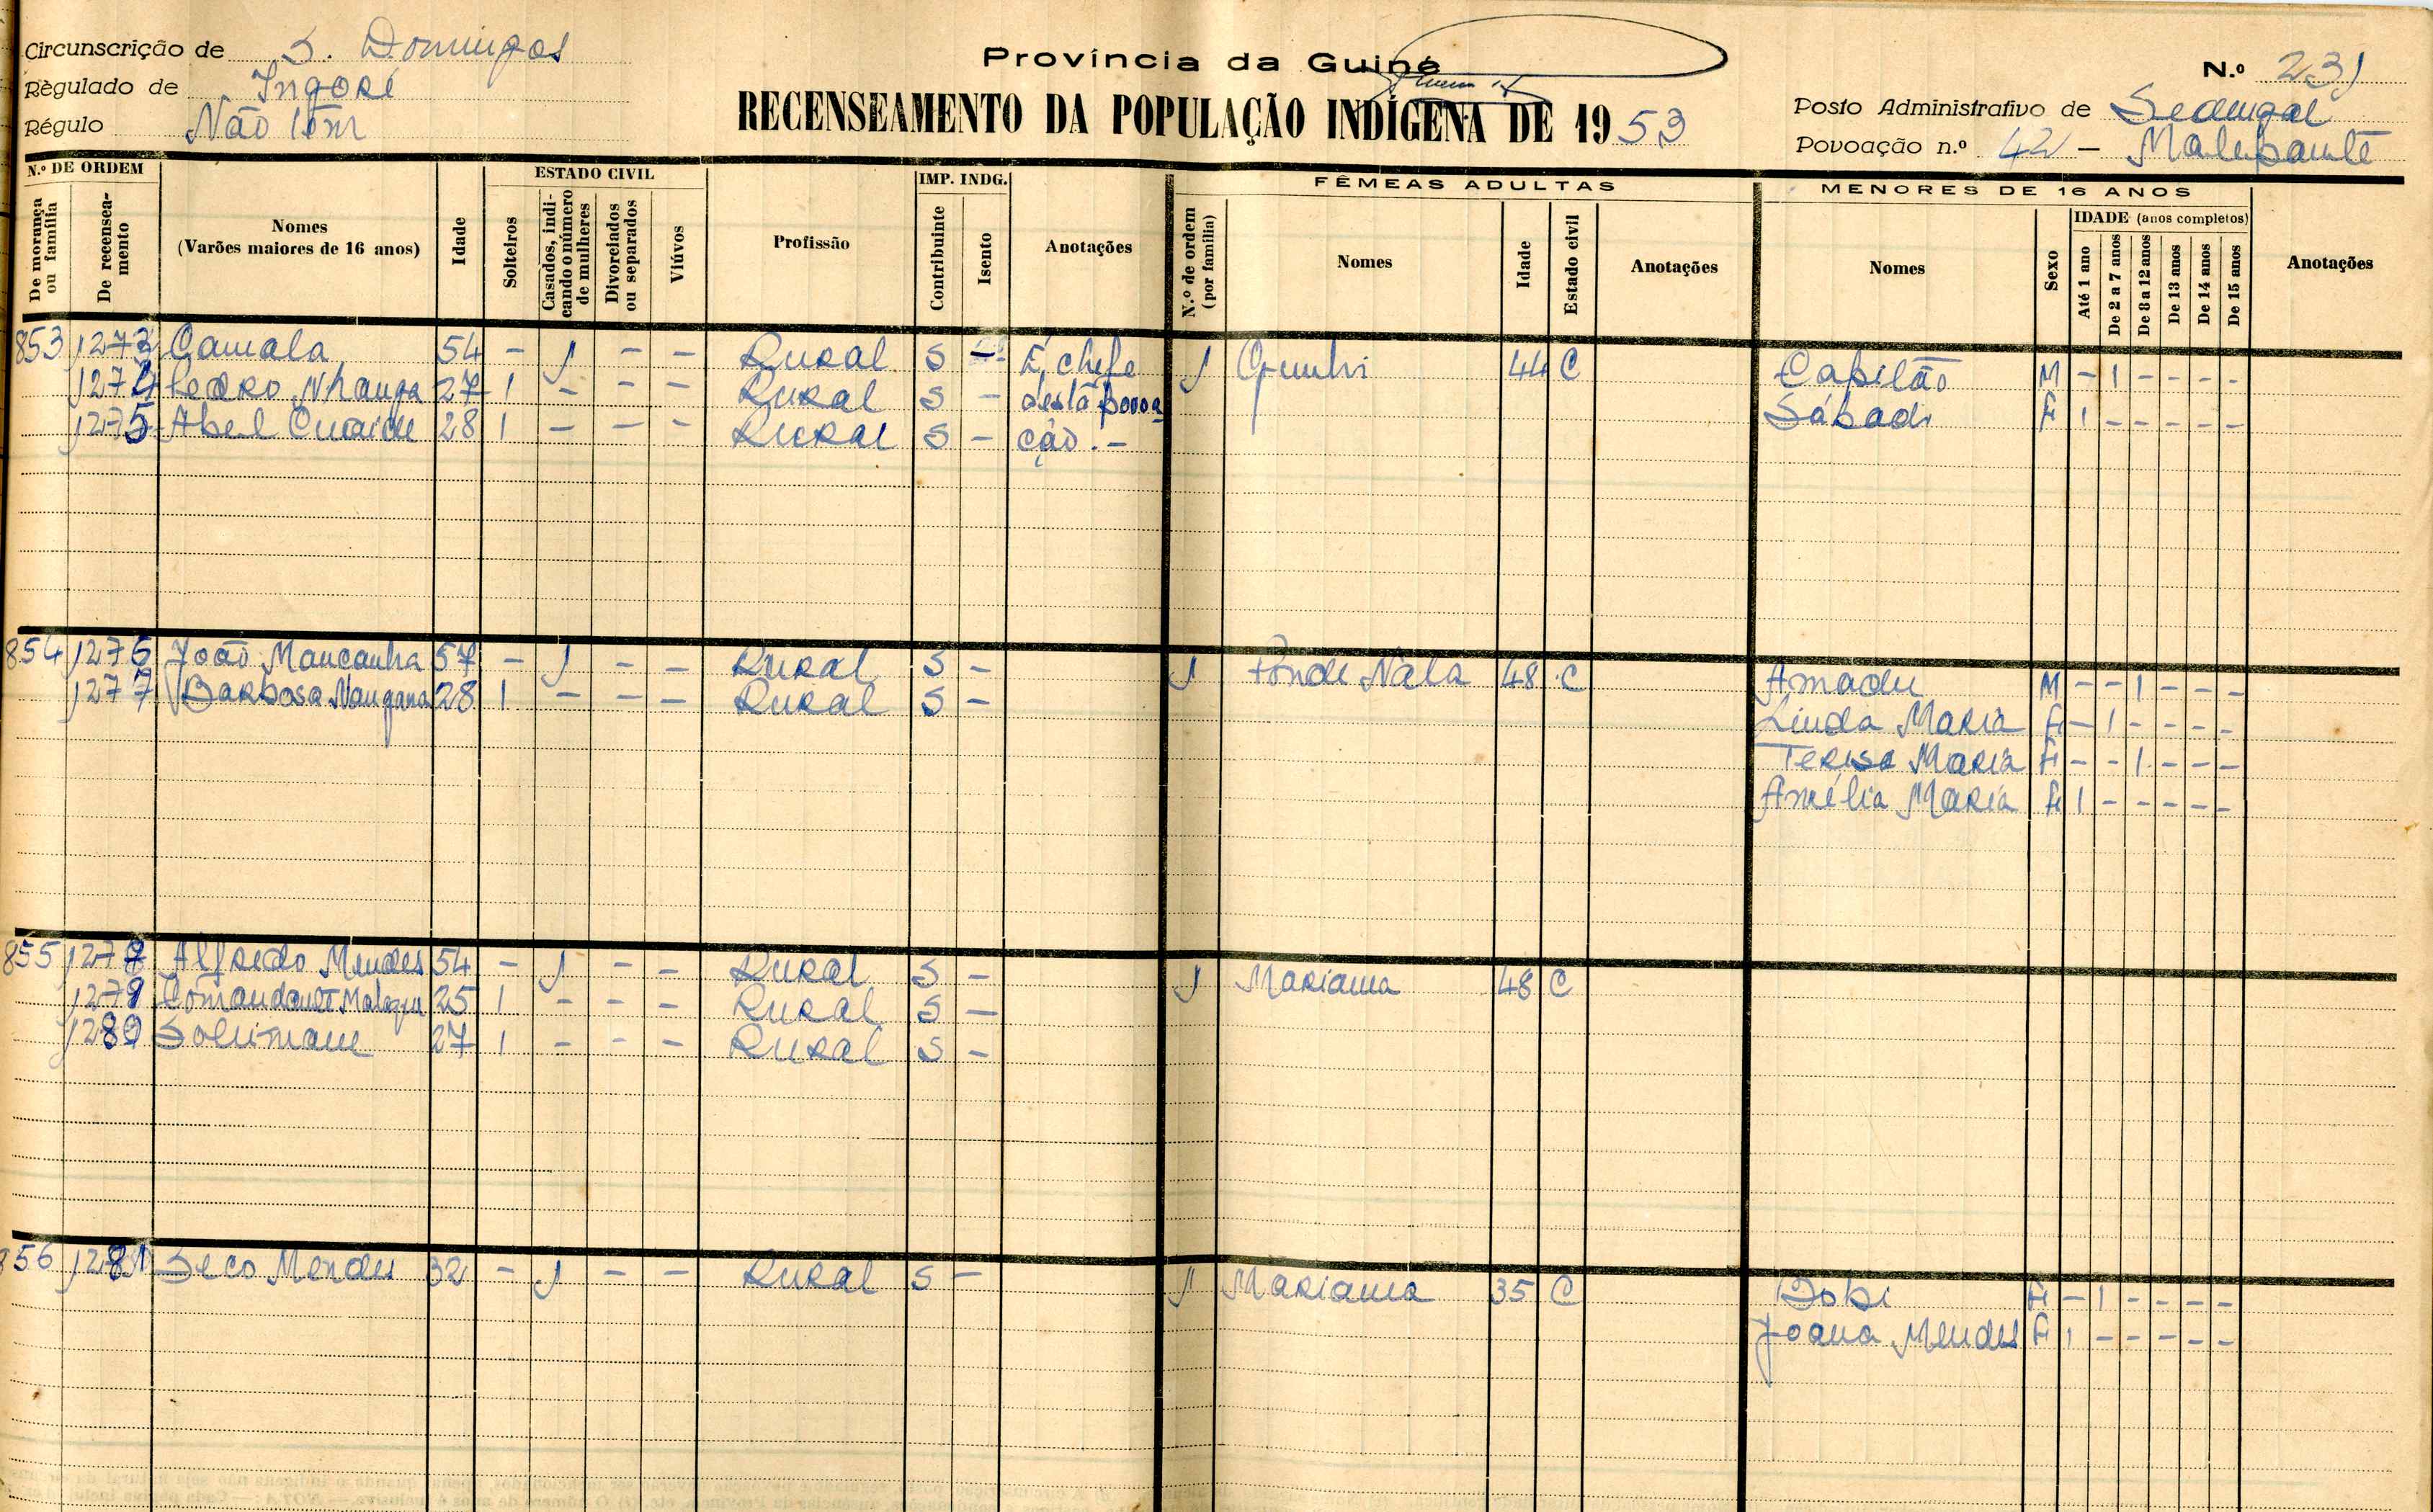 Circunscrição de S. Domingos
Règulado de Ingoré
Régulo Não tem
Província da Guiné
RECENSEAMENTO DA POPULAÇÃO INDÍGENA DE 1953
N.º 231
Posto Administrativo de Sedengal
Povoação n.º 42 -
N.º DE ORDEM
De morança ou família
De recenseamento
Nomes
(Varões maiores de 16 anos)
Idade
ESTADO CIVIL
Solteiros
Casados, indicando o número de mulheres
Divorciados ou separados
Viúvos
Profissão
IMP. INDG.
Contribuinte
Isento
Anotações
FÊMEAS ADULTAS
N.º de ordem (por família)
Nomes
Idade
Estado civil
Anotações
MENORES DE 16 ANOS
Nomes
Sexo
IDADE (anos completos)
Até 1 ano
De 2 a 7 anos
De 8 a 12 anos
De 13 anos
De 14 anos
De 15 anos
Anotações
853 1273 Camala 54 - 1 - - Rural S - É chefe 1 44 C Capitão M - 1 - - - -
1274 Pedro Nhanga 27 1 - - - Rural S - desta povoa Sábadi F 1 - - - - -
1275 Abel 28 1 - - - Rural S - ção. -
854 1276 João Mancanha 57 - 1 - - Rural S - 1 Nala 48 C Amadu M - - 1 - - -
1277 Barbosa Nangana 28 1 - - - Rural S - Linda Maria F - 1 - - - -
Teresa Maria F - - 1 - - -
Amélia Maria F 1 - - - - -
855 1278 Alfredo Mendes 54 - 1 - - Rural S - 1 Mariama 48 C
1279 Comandante 25 1 - - - Rural S -
1280 Solimane 27 1 - - - Rural S -
856 1281 Seco Mendes 32 - 1 - - Rural S - 1 Mariama 35 C F - 1 - - - -
Joana Mendes F 1 - - - - -